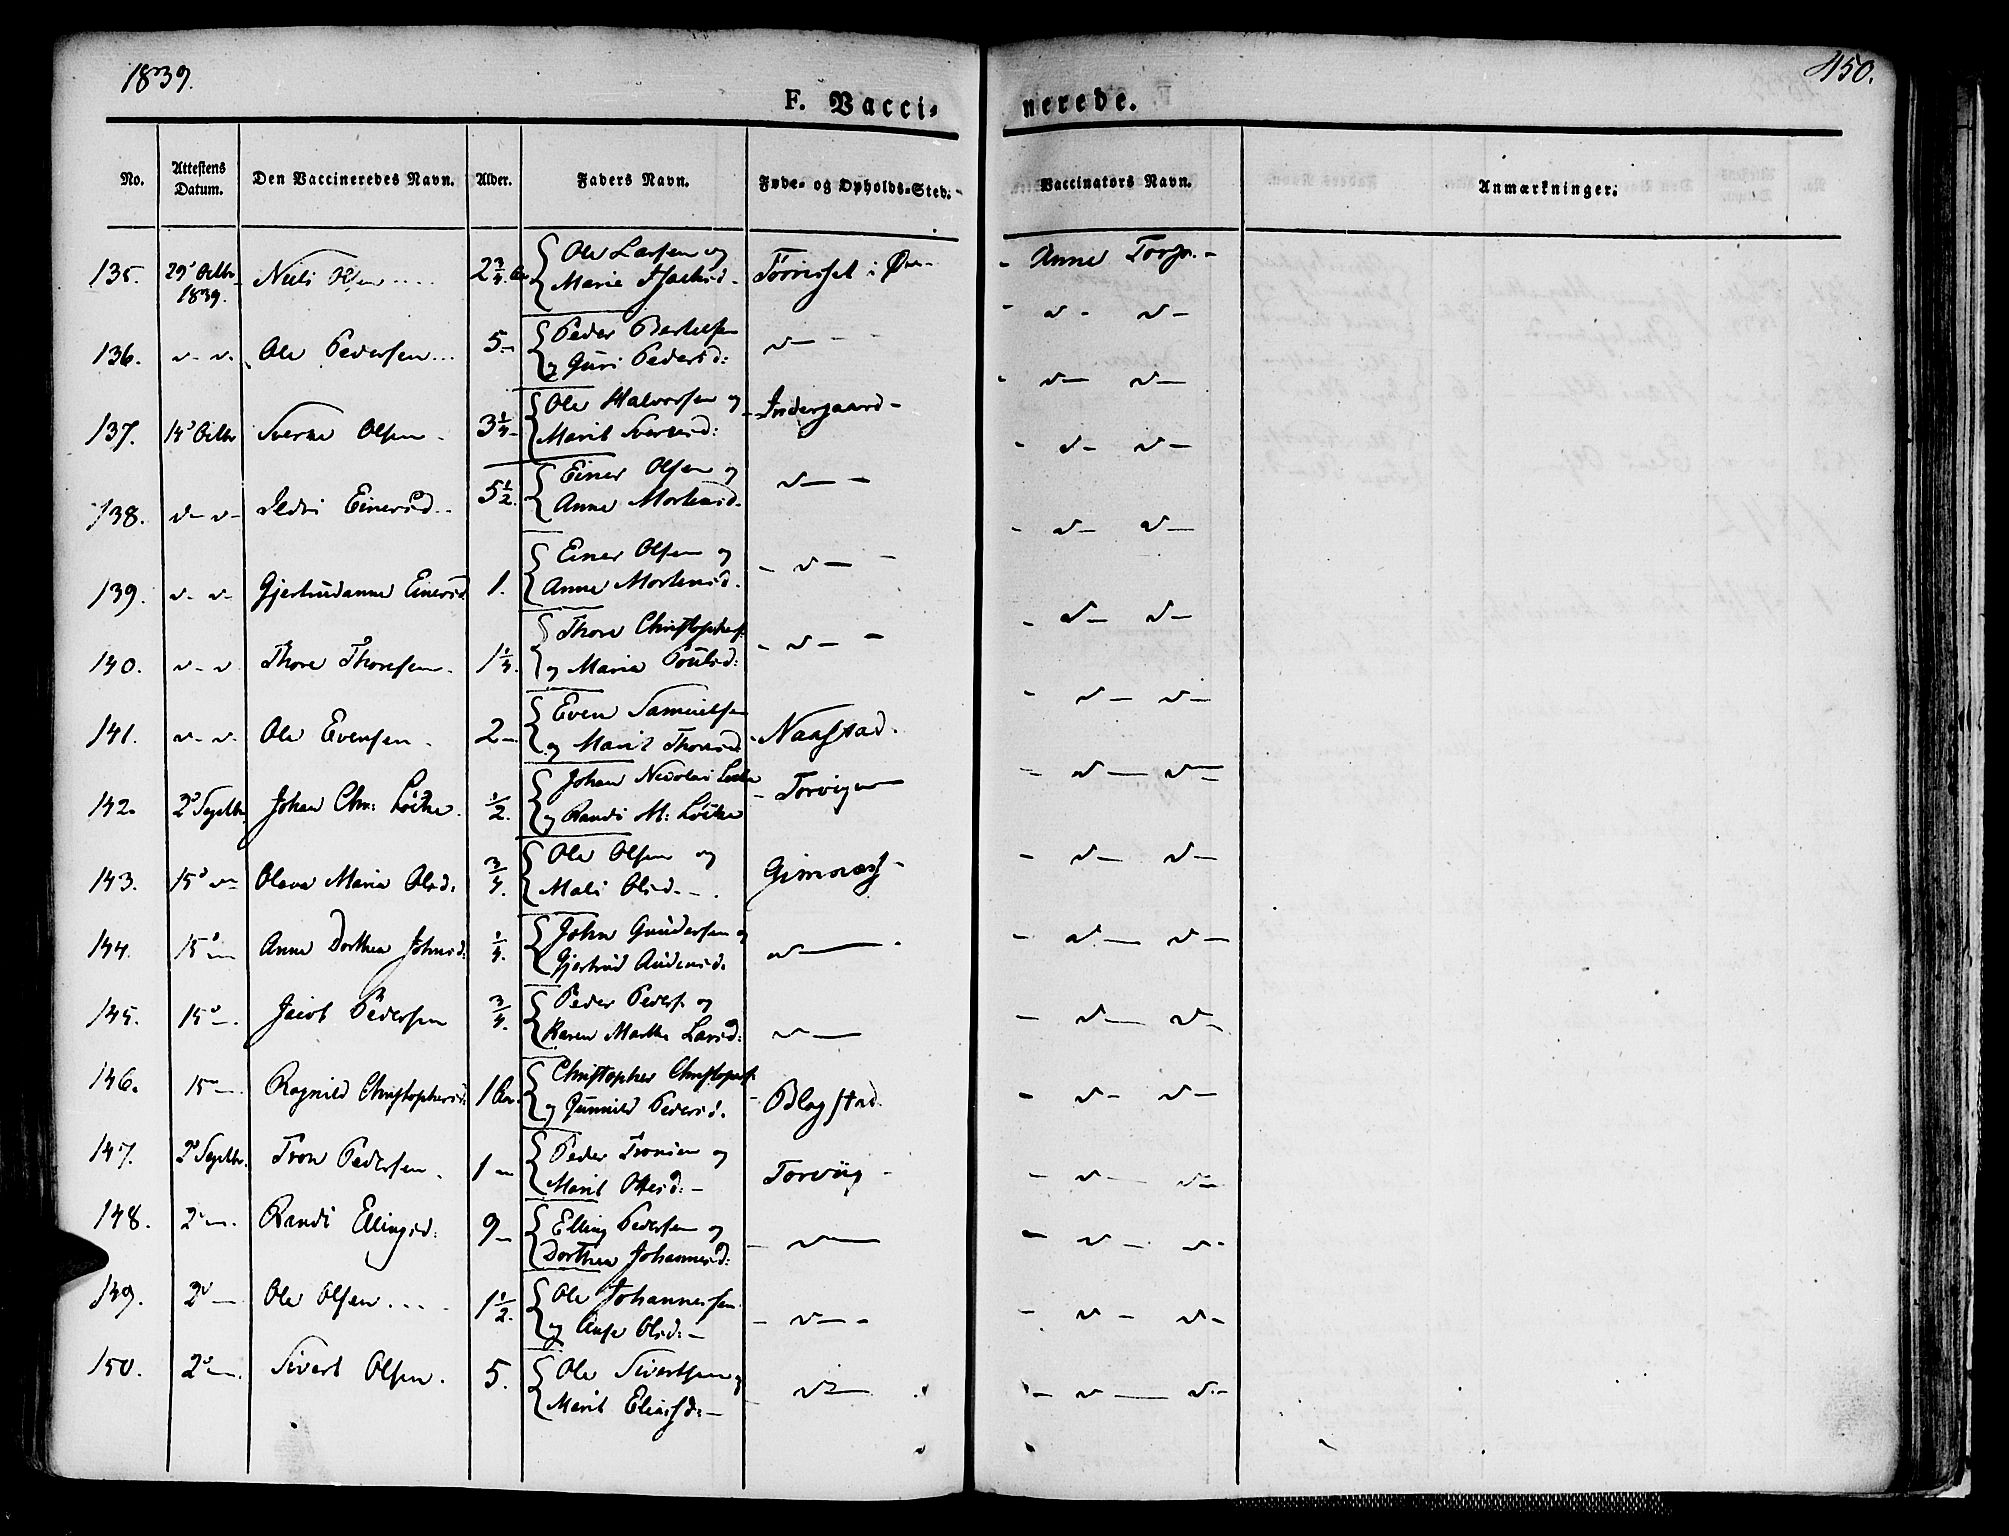 1839.
450.
F. Vaccinerede.
No. Attestens Datum. Den Vaccineredes Navn. Alder. Faders Navn. Føde- og Opholds-Sted. Vaccinators Navn. Anmærkninger.
135. 29d Octbr 1839. Niels Olsen .... 2 3/4 Aar { Ole Larsen og Marie - i - Anne
136. v- v. Ole Pedersen... 5- { Peder Bertelsen og Guri Pedersd: v- - - v- v-
137. 14d Octbr Sverke Olsen - 3 1/4- { Ole Halvorsen og Marit - Indergaard - - v- v-
138. v- v- Ildri Einersd.- 5 1/2. { Einer Olsen og Anne Mortensd. v- - - v- v-
139. v- v- Gjertrudanne Einersd 1. { Einer Olsen og Anne Mortensd. - v- - - v- v-
140. v- v Thore Thoresen. 1 1/4. { Thore Christophers. og Maria Poulsd: - v- - - v- v-
141. v- v. Ole Evensen. 2- { Even Samuelsen og Marit Thoresd. Naastad. - v- v-
142. 2d Septbr. Johan Chr: Löcke. 1/2. { Johan Nicolai Löcke og Randi M: Löcke - Torvigen - v- v-
143. 15d v- Olava Maria Olsd. 3/4. { Ole Olsen og Mali Olsd.-. Gimnæs - - v- v-
144. 15d - Anne Dorthea Johnsd: 1/4. { John Gundersen og Gjertrud Andersd. v- - v- v-
145. 15d -. Jacob Pedersen 3/4. { Peder Peders. og Karen Marthe Larsd: v- - v- v-
146. 15d -. Ragnild Christophersd. 1 Aar. { Christopher Christophers. og Gunnild Pedersd. - Blagstad - v- v-
147. 2d Septbr. Tron Pedersen. 1 - { Peder Tronsen og Marit Ottesd:- Torvüg - - v- v-
148. 2d -. Randi Ellingsd: 9- { Elling Pedersen og Dorthea Johannesd: - v- - v- v-
149. 2d - Ole Olsen.... 1 1/2. { Ole Johannessen og Ane Olsd:- - v- - - v- v-
150. 2d -. Sivert Olsen. 5. { Ole Sivertsen og Marit Eliasd:- v- - v- v-